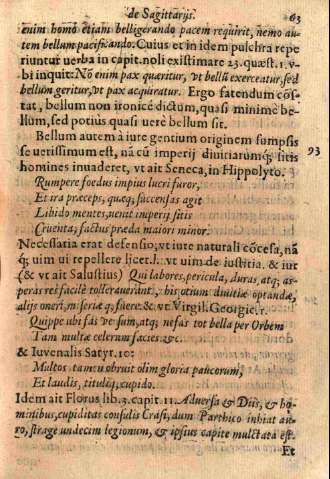 de Sagittarijs. 63
enim homo etiam belligerando pacem requirit, nemo au-
tem bellum pacificando. Cuius et in idem pulchra repe
riuntur verba in capit. noli existimare 23. quæst. 1. v-
bi inquit: Nõ enim pax quæritur, vt bellũ exerceatur, sed
bellum geritur, vt pax acquiratur. Ergo fatendum cõs-
tat, bellum non ironicè dictum, quasi minimè bel-
lum, sed potius quasi verè bellum sit.
Bellum autem à iure gentium originem sumpsis
se verissimum est, nã cũ imperij divitiarumq́; sitis 93
homines invaderet, vt ait Seneca, in Hippolyto.
Rumpere foedus impius lucri furor,
Et ira præceps, quæq; succensas agit
Libido mentes, venit imperij sitis
Cruenta, factus præda maiori minor.
Necessaria erat defensio, vt iure naturali cõcesa, nã
q́; vim vi repellere licet. l. vt vim de iustitia. & iur
(& vt ait Salustius) Qui labores, pericula, duras, atq; as-
peras res facilè tolleraverant, his otium divitiæ optandæ,
alijs oneri, miseriæq́; fuere. & vt Virgil. Georgic. 1.
Quippe ubi fas versum, atq; nefas tot bella per Orbem
Tam multæ celerum facies. &c.
& Iuvenalis Satyr. 10:
Multos tamen obruit olim gloria paucorum,
Et laudis, titulíq; cupido.
Idem ait Florus lib. 3. capit. 11. Adversa & Diis, & ho-
minibus, cupiditas consulis Crasi, dum Parthico inhiat au-
ro, strage undecim legionum, & ipsius capite mulctata est.
Et